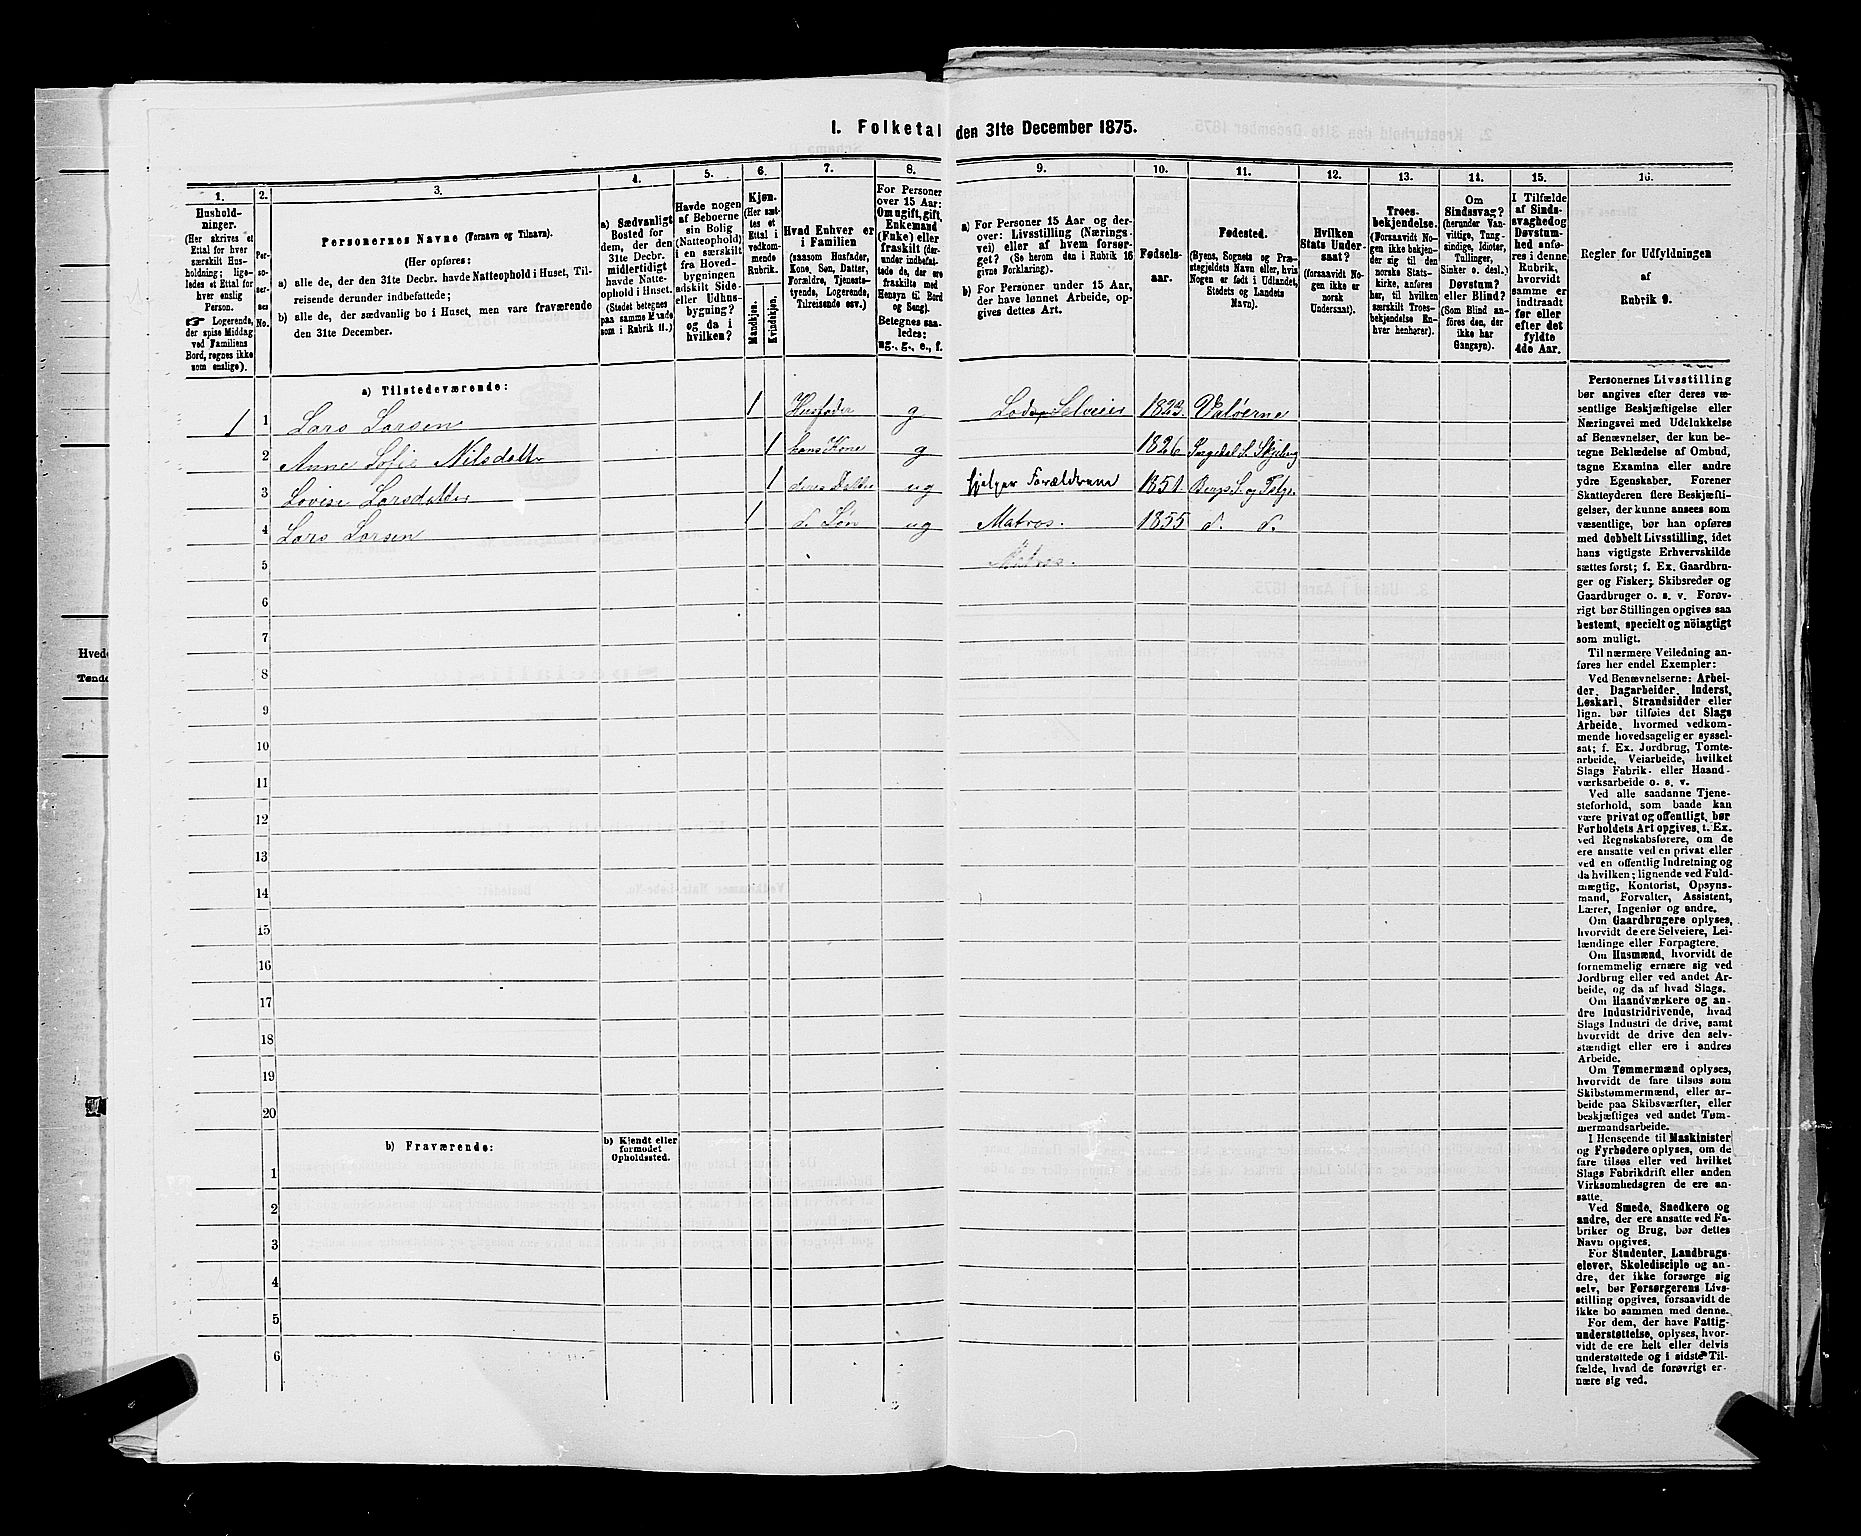 I. Folketal den 31te December 1875.
1. 2. 3. 4. 5. 6. 7. 8. 9. 10. 11. 12. 13. 14. 15. 16.
Hushold-
ninger.
(Her skrives et
Ettal for hver
særskilt Hus-
holdning; lige-
ledes et Ettal for
hver enslig
Person.
☞ Logerende,
der spise Middag
ved Familiens
Bord, regnes ikke
som enslige).
Per-
so-
ner-
nes
No.
Personernes Navne (Fornavn og Tilnavn).
(Her opføres:
a) alle de, der den 31te Decbr. havde Natteophold i Huset, Til-
reisende derunder indbefattede;
b) alle de, der sædvanlig bo i Huset, men vare fraværende
den 31te December.
a) Sædvanligt
Bosted for
dem, der den
31te Decbr.
midlertidigt
havde Natte-
ophold i Huset.
(Stedet betegnes
paa samme Maade
som i Rubrik 11.)
Havde nogen
af Beboerne
sin Bolig
(Natteophold)
i en særskilt
fra Hoved-
bygningen
adskilt Side-
eller Udhus-
bygning?
og da i
hvilken?
Kjøn.
(Her sæt-
tes et
Ettal i
vedkom-
mende
Rubrik.
Mandkjøn.
Kvindekjøn.
Hvad Enhver er
i Familien
(saasom Husfader,
Kone, Søn, Datter,
Forældre, Tjeneste-
tyende, Logerende,
Tilreisende osv.)
For Personer
over 15 Aar:
Om ugift, gift,
Enkemand
(Enke) eller
fraskilt (der-
under indbefat-
tede de, der ere
fraskilte med
Hensyn til Bord
og Seng).
Betegnes saa-
ledes:
ug., g., e., f.
a) For Personer 15 Aar og der-
over: Livsstilling (Nærings-
vei) eller af hvem forsør-
get? (Se herom den i Rubrik 16
givne Forklaring).
b) For Personer under 15 Aar,
der have lønnet Arbeide, op-
gives dettes Art.
Fødsels-
aar.
Fødested.
(Byens, Sognets og Præ-
stegjeldets Navn eller, hvis
Nogen er født i Udlandet,
Stedets og Landets
Navn).
Hvilken
Stats Under-
saat?
(forsaavidt No-
gen ikke er
norsk
Undersaat).
Troes-
bekjendelse.
(Forsaavidt No-
gen ikke bekjen-
der sig til den
norske Stats-
kirke, anføres
her, til hvilken
særskilt Troes-
bekjendelse En-
hver henhører).
Om
Sindssvag?
(herunder Van-
vittige, Tung-
sindige, Idioter,
Tullinger,
Sinker o. desl.)
Døvstum?
eller Blind?
(Som Blind an-
føres den, der
ikke har
Gangsyn).
I Tilfælde
af Sinds-
svaghed og
Døvstum-
hed anfø-
res i denne
Rubrik,
hvorvidt
samme er
indtraadt
før eller
efter det
fyldte
4de Aar.
Regler for Udfyldningen
af
Rubrik 9.
a) Tilstedeværende:
1 1 Lars Larsen 1 Husfader g Lods Selveier 1823. Valøerne
2 Anne Sofie Nilsdatter 1 hans Kone g 1826
3 Lovise Larsdatter 1 deres Datter ug hjelper Forældrene 1851
4 Lars Larsen 1 d. Søn ug Matros. 1855 d. d.
5 Matros.
6
7
8
9
10
11
12
13
14
15
16
17
18
19
20
b) Fraværende:
b) Kjendt eller
formodet
Opholdssted.
1
2
3
4
5
6
Personernes Livsstilling
bør angives efter deres væ-
sentlige Beskjæftigelse eller
Næringsvei med Udelukkelse
af Benævnelser, der kun be-
tegne Beklædelse af Ombud,
tagne Examina eller andre
ydre Egenskaber. Forener
Skatteyderen flere Beskjæfti-
gelser, der kunne ansees som
væsentlige, bør han opføres
med dobbelt Livsstilling, idet
hans vigtigste Erhvervskilde
sættes først; f. Ex. Gaardbru-
ger og Fisker; Skibsreder og
Gaardbruger o. s. v. Forøv-
rigt bør Stillingen opgives saa
bestemt, specielt og nøiagtigt
som muligt.
Til nærmere Veiledning an-
føres her endel Exempler:
Ved Benævnelserne: Arbei-
der, Dagarbeider, Inderst,
Løskarl, Strandsidder eller
lign. bør tilføies det Slags
Arbeide, hvormed vedkom-
mende hovedsagelig er syssel-
sat; f. Ex. Jordbrug, Tomte-
arbeide, Veiarbeide, hvilket
Slags Fabrik- eller Haand-
værksarbeide o. s. v.
Ved alle saadanne Tjene-
steforhold, som baade kan
være privat og offentligt, bør
Forholdets Art opgives, t. Ex.
ved Regnskabsførere, om de
ere ansatte ved en privat eller
ved en offentlig Indretning og
da hvilken; lignende ved Fuld-
mægtig, Kontorist, Opsyns-
mand, Forvalter, Assistent,
Lærer, Ingeniør og andre.
Om Gaardbrugere oplyses,
hvorvidt de ere Selveiere, Lei-
lændinge eller Forpagtere.
Om Husmænd, hvorvidt de
fornemmelig ernære sig ved
Jordbrug eller ved andet Ar-
beide, og da af hvad Slags.
Om Haandværkere og an-
dre Industridrivende, hvad
Slags Industri de drive, samt
hvorvidt de drive den selv-
stændigt eller ere i andres
Arbeide.
Om Tømmermænd oplyses,
hvorvidt de fare tilsøs som
Skibstømmermænd, eller ar-
beide paa Skibsværfter, eller
beskjæftiges ved andet Tøm-
mermandsarbeide.
I Henseende til Maskinister
og Fyrbødere oplyses, om de
fare tilsøs eller ved hvilket
Slags Fabrikdrift eller anden
Virksomhedsgren de ere an-
satte.
Ved Smede, Snedkere og
andre, der ere ansatte ved Fa-
briker og Brug, bør dettes
Navn opgives.
For Studenter, Landbrugs-
elever, Skoledisciple og an-
dre, der ikke forsørge sig
selv, bør Forsørgerens Livs-
stilling opgives, forsaavidt de
ikke bo sammen med denne.
For dem, der have Fattig-
understøttelse, oplyses, hvor-
vidt de ere helt eller delvis
understøttede og i sidste Til-
fælde, hvad de forøvrigt er-
nære sig ved.
Hved
Tønde